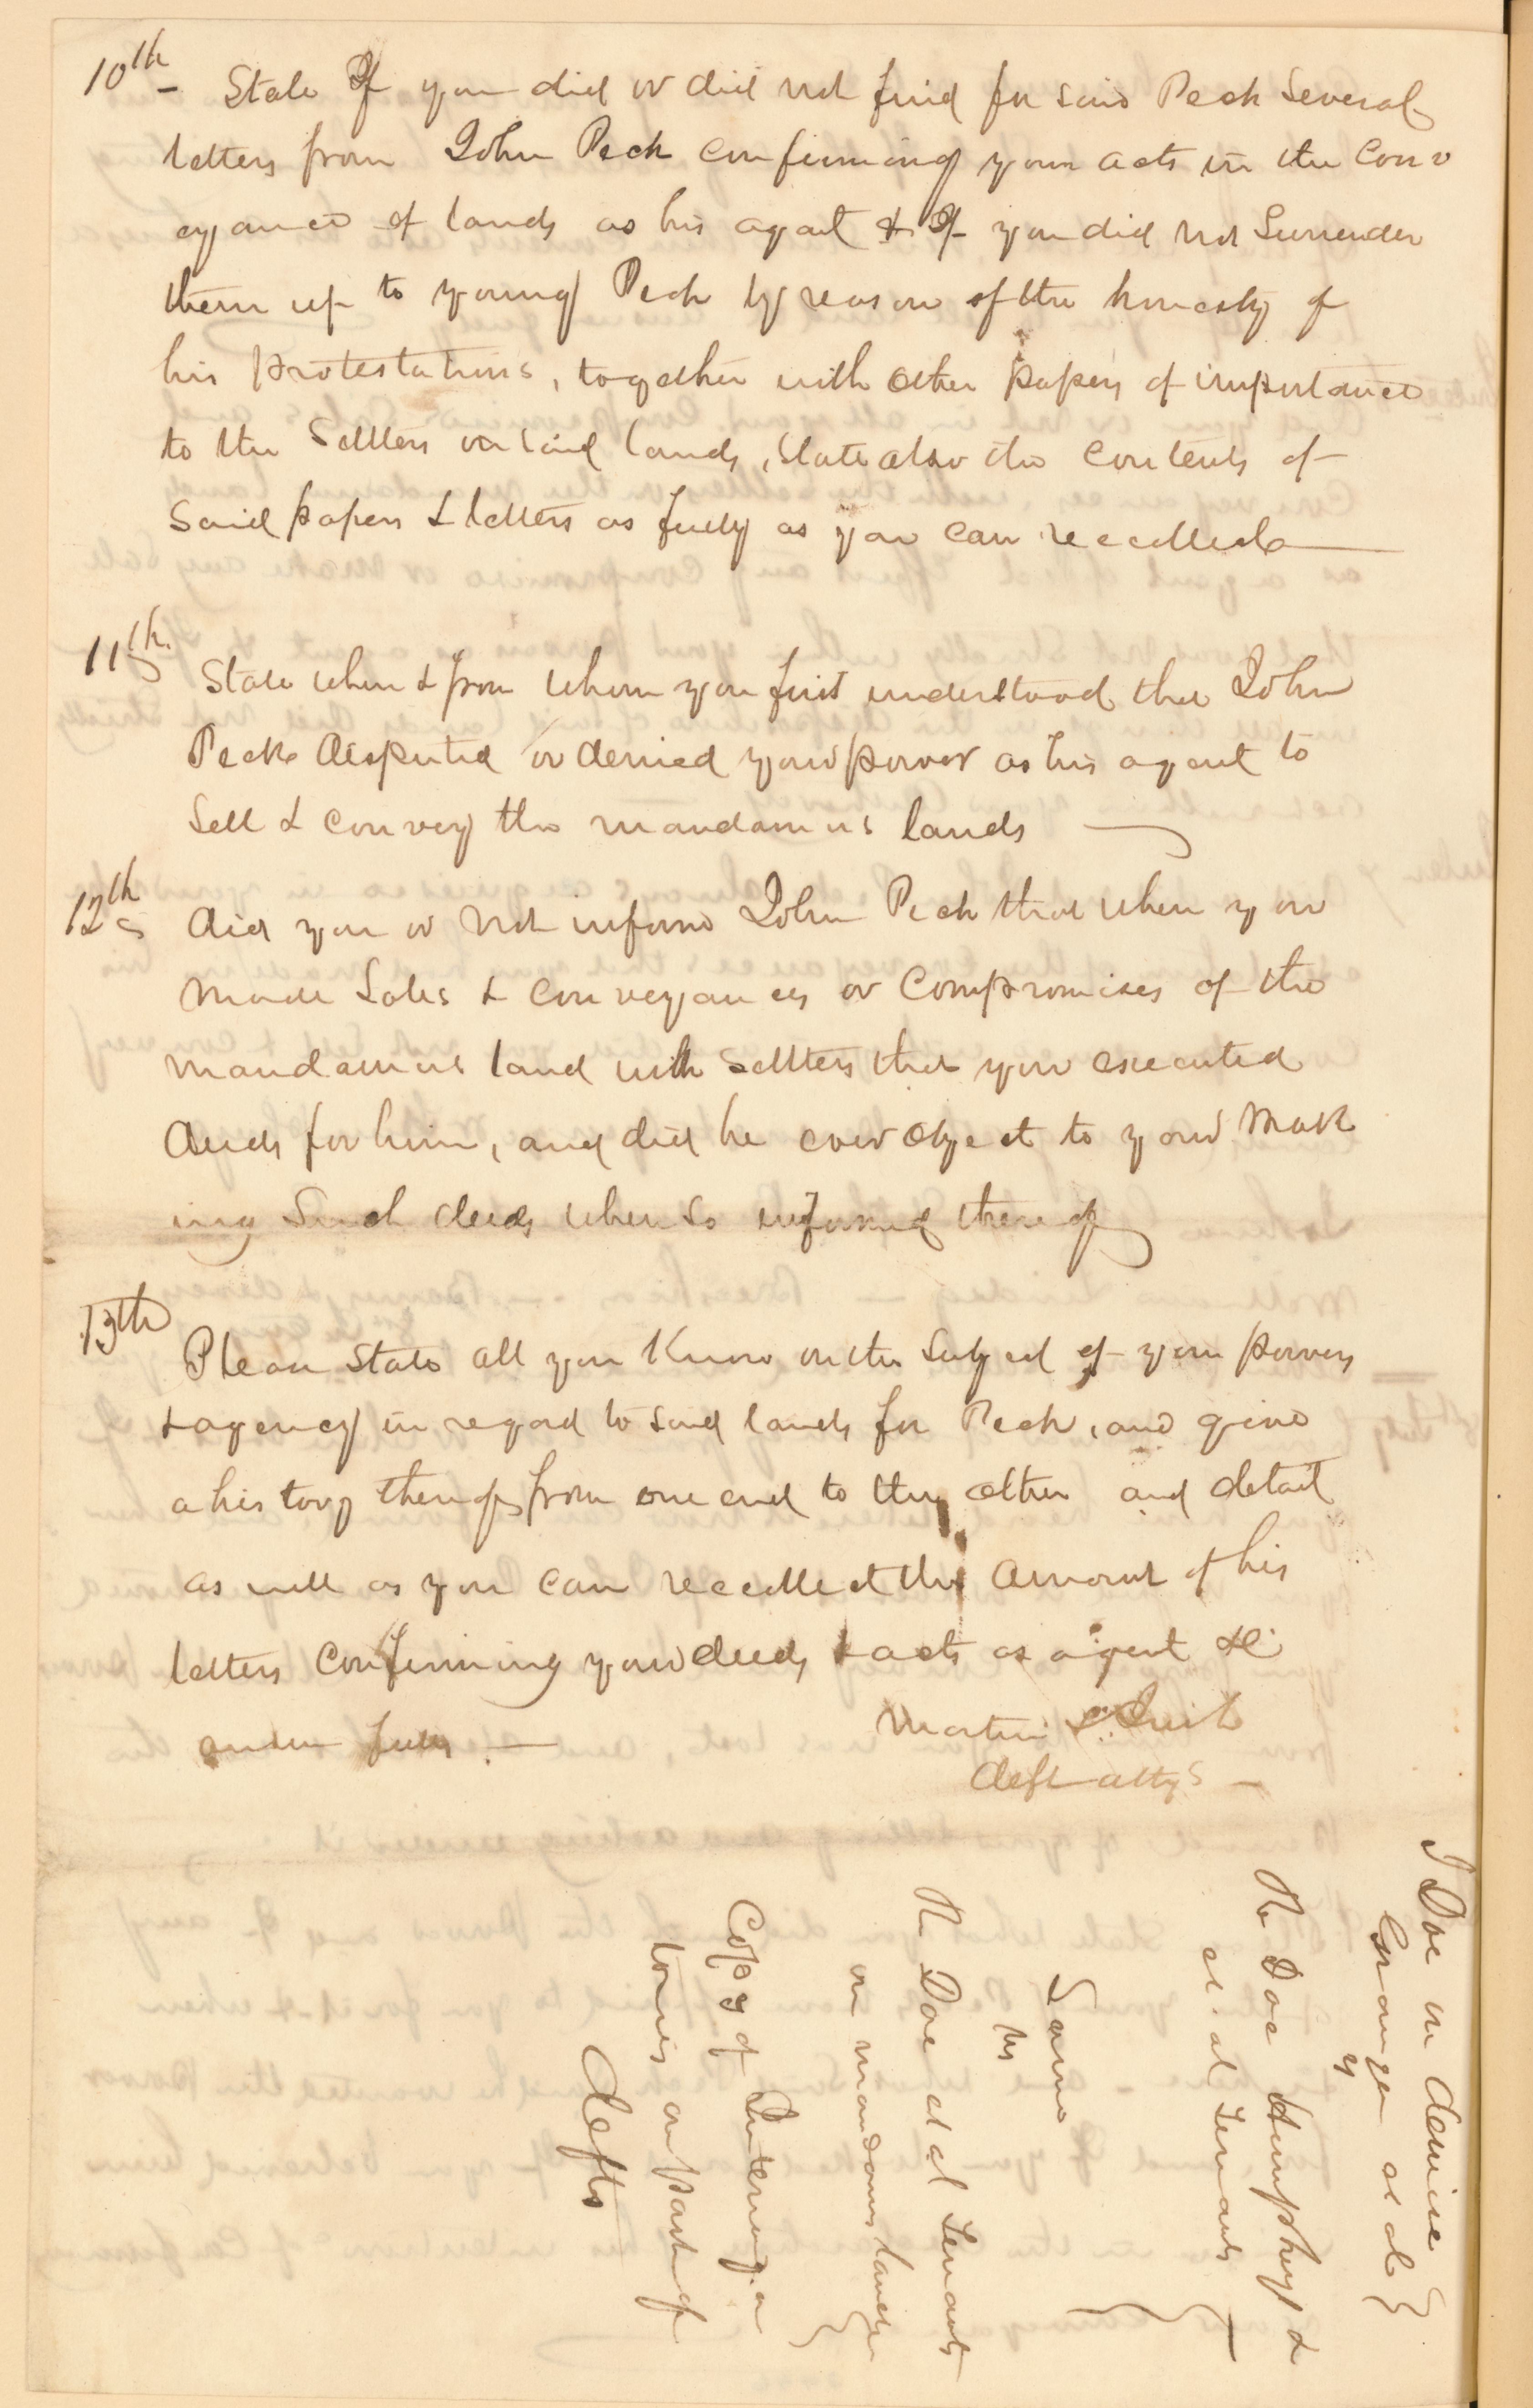 10th - State If you did or did not find for said Peck Several
letters from John Peck confirming your acts in the Conv
eyance of lands as his agent & If you did not Surrender
them up to young Peck by reason of the honesty of
his protestations, together with other papers of importance
to the Settlers on said lands, State also the contents of
Said papers & letters as fully as you can recollect
11th State when & from whom you first understood that John
Peck disputed or denied your power as his agent to
Sell & convey the mandamus lands
12th Did you or not inform John Peck that when you
made Sales & conveyances or Compromises of the
mandamus land with Settlers that you executed
deeds for him, and did he ever object to your mak
ing Such deeds when so informed thereof
13th Please State all you Know on the Subject of your powers
& agency in regard to said lands for Peck, and give
a history thereof from one end to the other and detail
as well as you can recollect the amount of his
letters Confirming your deeds & acts as agent &c
answer fully -
Martin &
deft attys -
J Doe on demise
Granger et al
vs
R Doe Humphrey &
et al Tenants
Same
vs
R Doe et al Tenants
on mandamus lands
Copy of Interroga
tories on part of
Defts